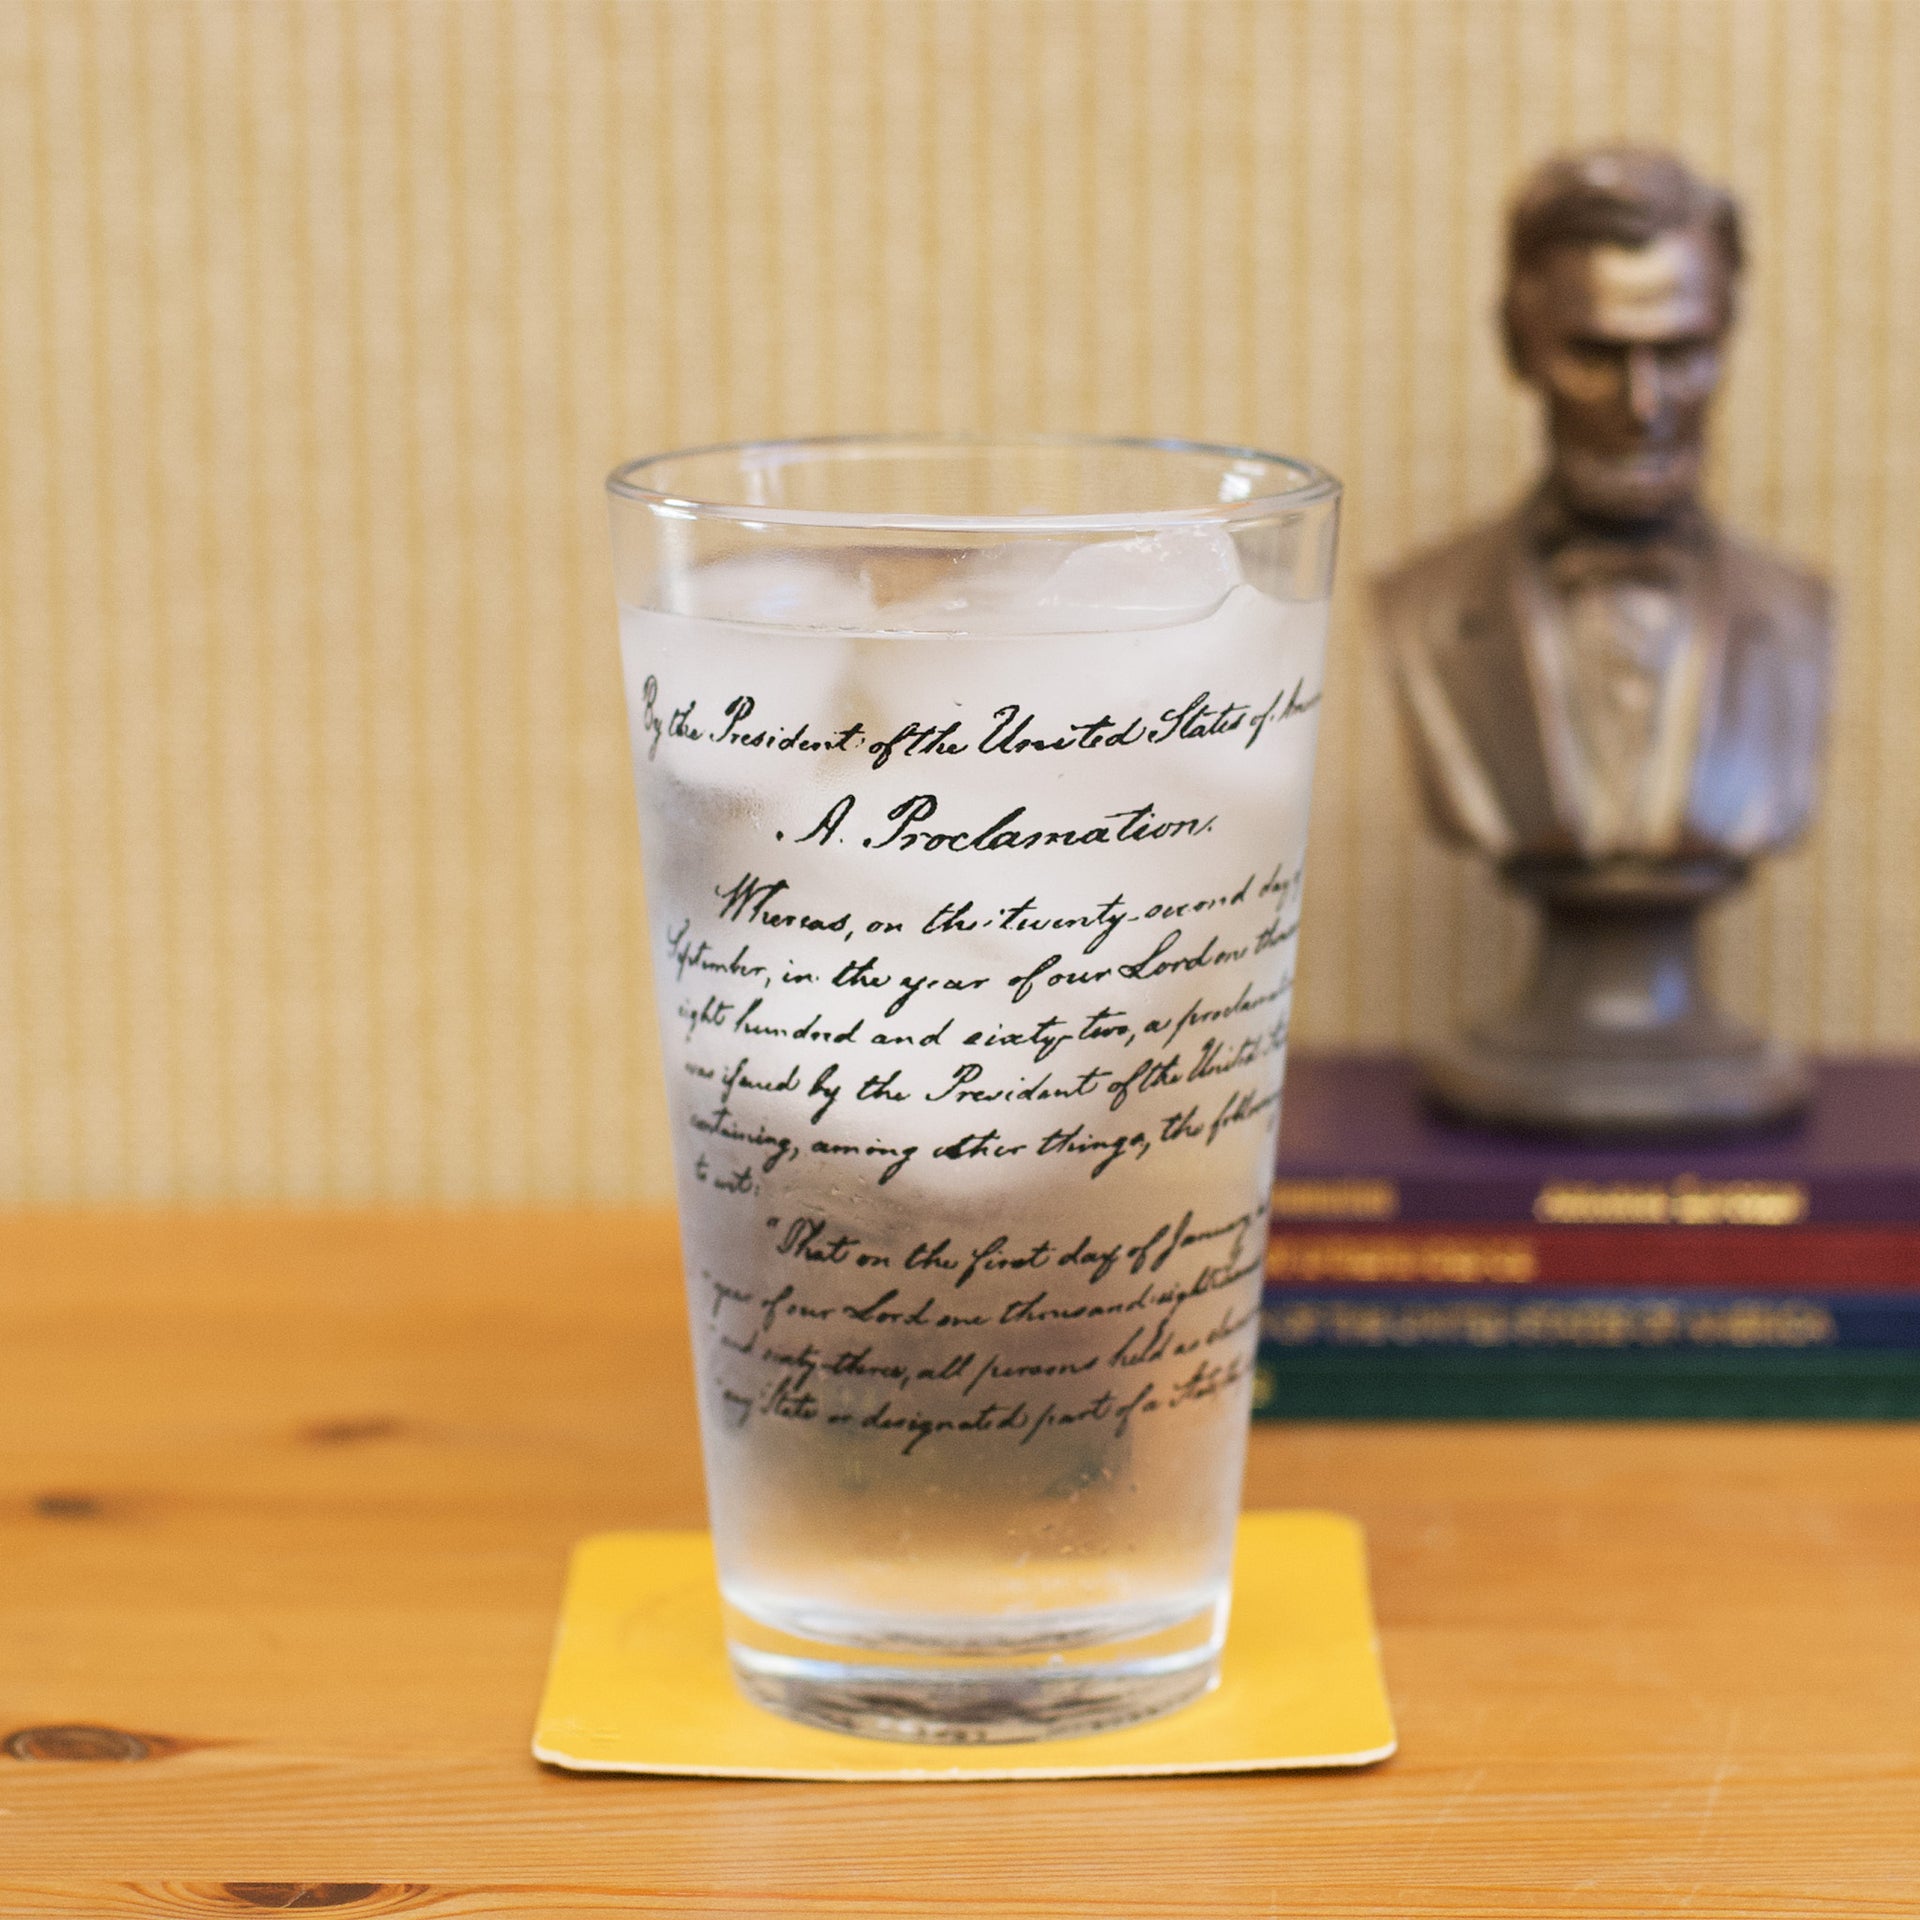 By the President of the United States of
A. Proclamation.
Whereas, on the twenty-second day
September, in the year of our Lord one
eight hundred and sixty-two, a
was issued by the President of the United
containing, among other things, the
to wit:
"That on the first day of January
"year of our Lord one thousand eight
"and sixty-three, all persons held as
"any State or designated part of a
OF THE UNITED STATES OF AMERICA